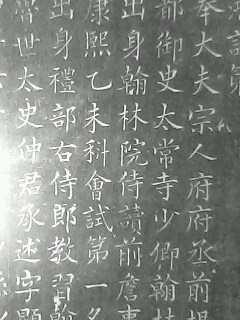 奉大夫宗人府府丞前提
都御史太常寺少卿翰林
出身翰林院侍讀前詹事
康熙乙未科會試第一名
出身禮部右侍郎教習翰
世太史仲君承述字顯